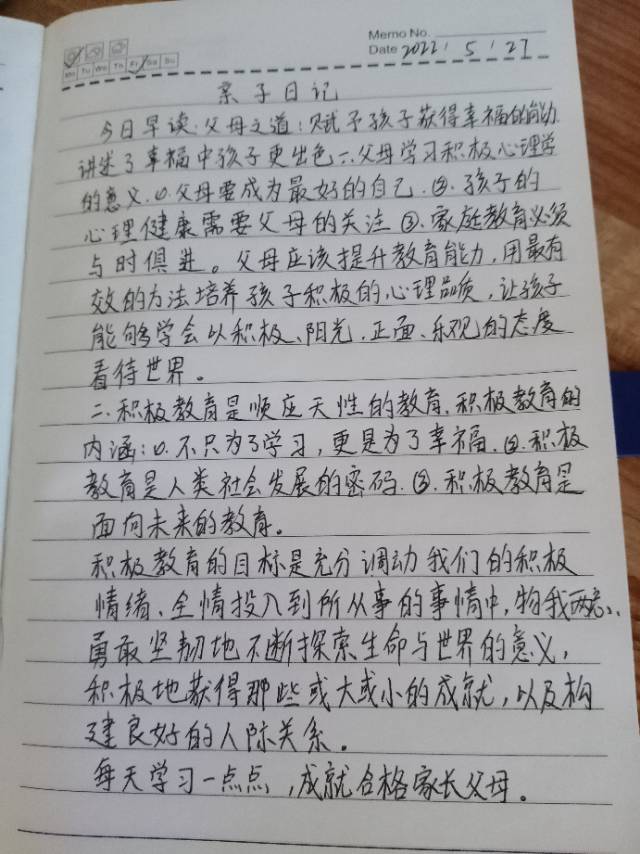 Memo No.
Mo Tu We Th Fr Sa Su
Date 2022 / 5 / 27
亲子日记
今日早读:父母之道:赋予孩子获得幸福的能力
讲述了幸福中孩子更出色一.父母学习积极心理学
的意义.①.父母要成为最好的自己.②.孩子的
心理健康需要父母的关注③.家庭教育必须
与时俱进。父母应该提升教育能力,用最有
效的方法培养孩子积极的心理品质,让孩子
能够学会以积极、阳光.正面、乐观的态度
看待世界。
二.积极教育是顺应天性的教育.积极教育的
内涵:①.不只为了学习,更是为了幸福.②.积极
教育是人类社会发展的密码.③.积极教育是
面向未来的教育。
积极教育的目标是充分调动我们的积极
情绪、全情投入到所从事的事情中,物我两忘、
勇敢坚韧地不断探索生命与世界的意义,
积极地获得那些或大或小的成就,以及构
建良好的人际关系。
每天学习一点点,成就合格家长父母。